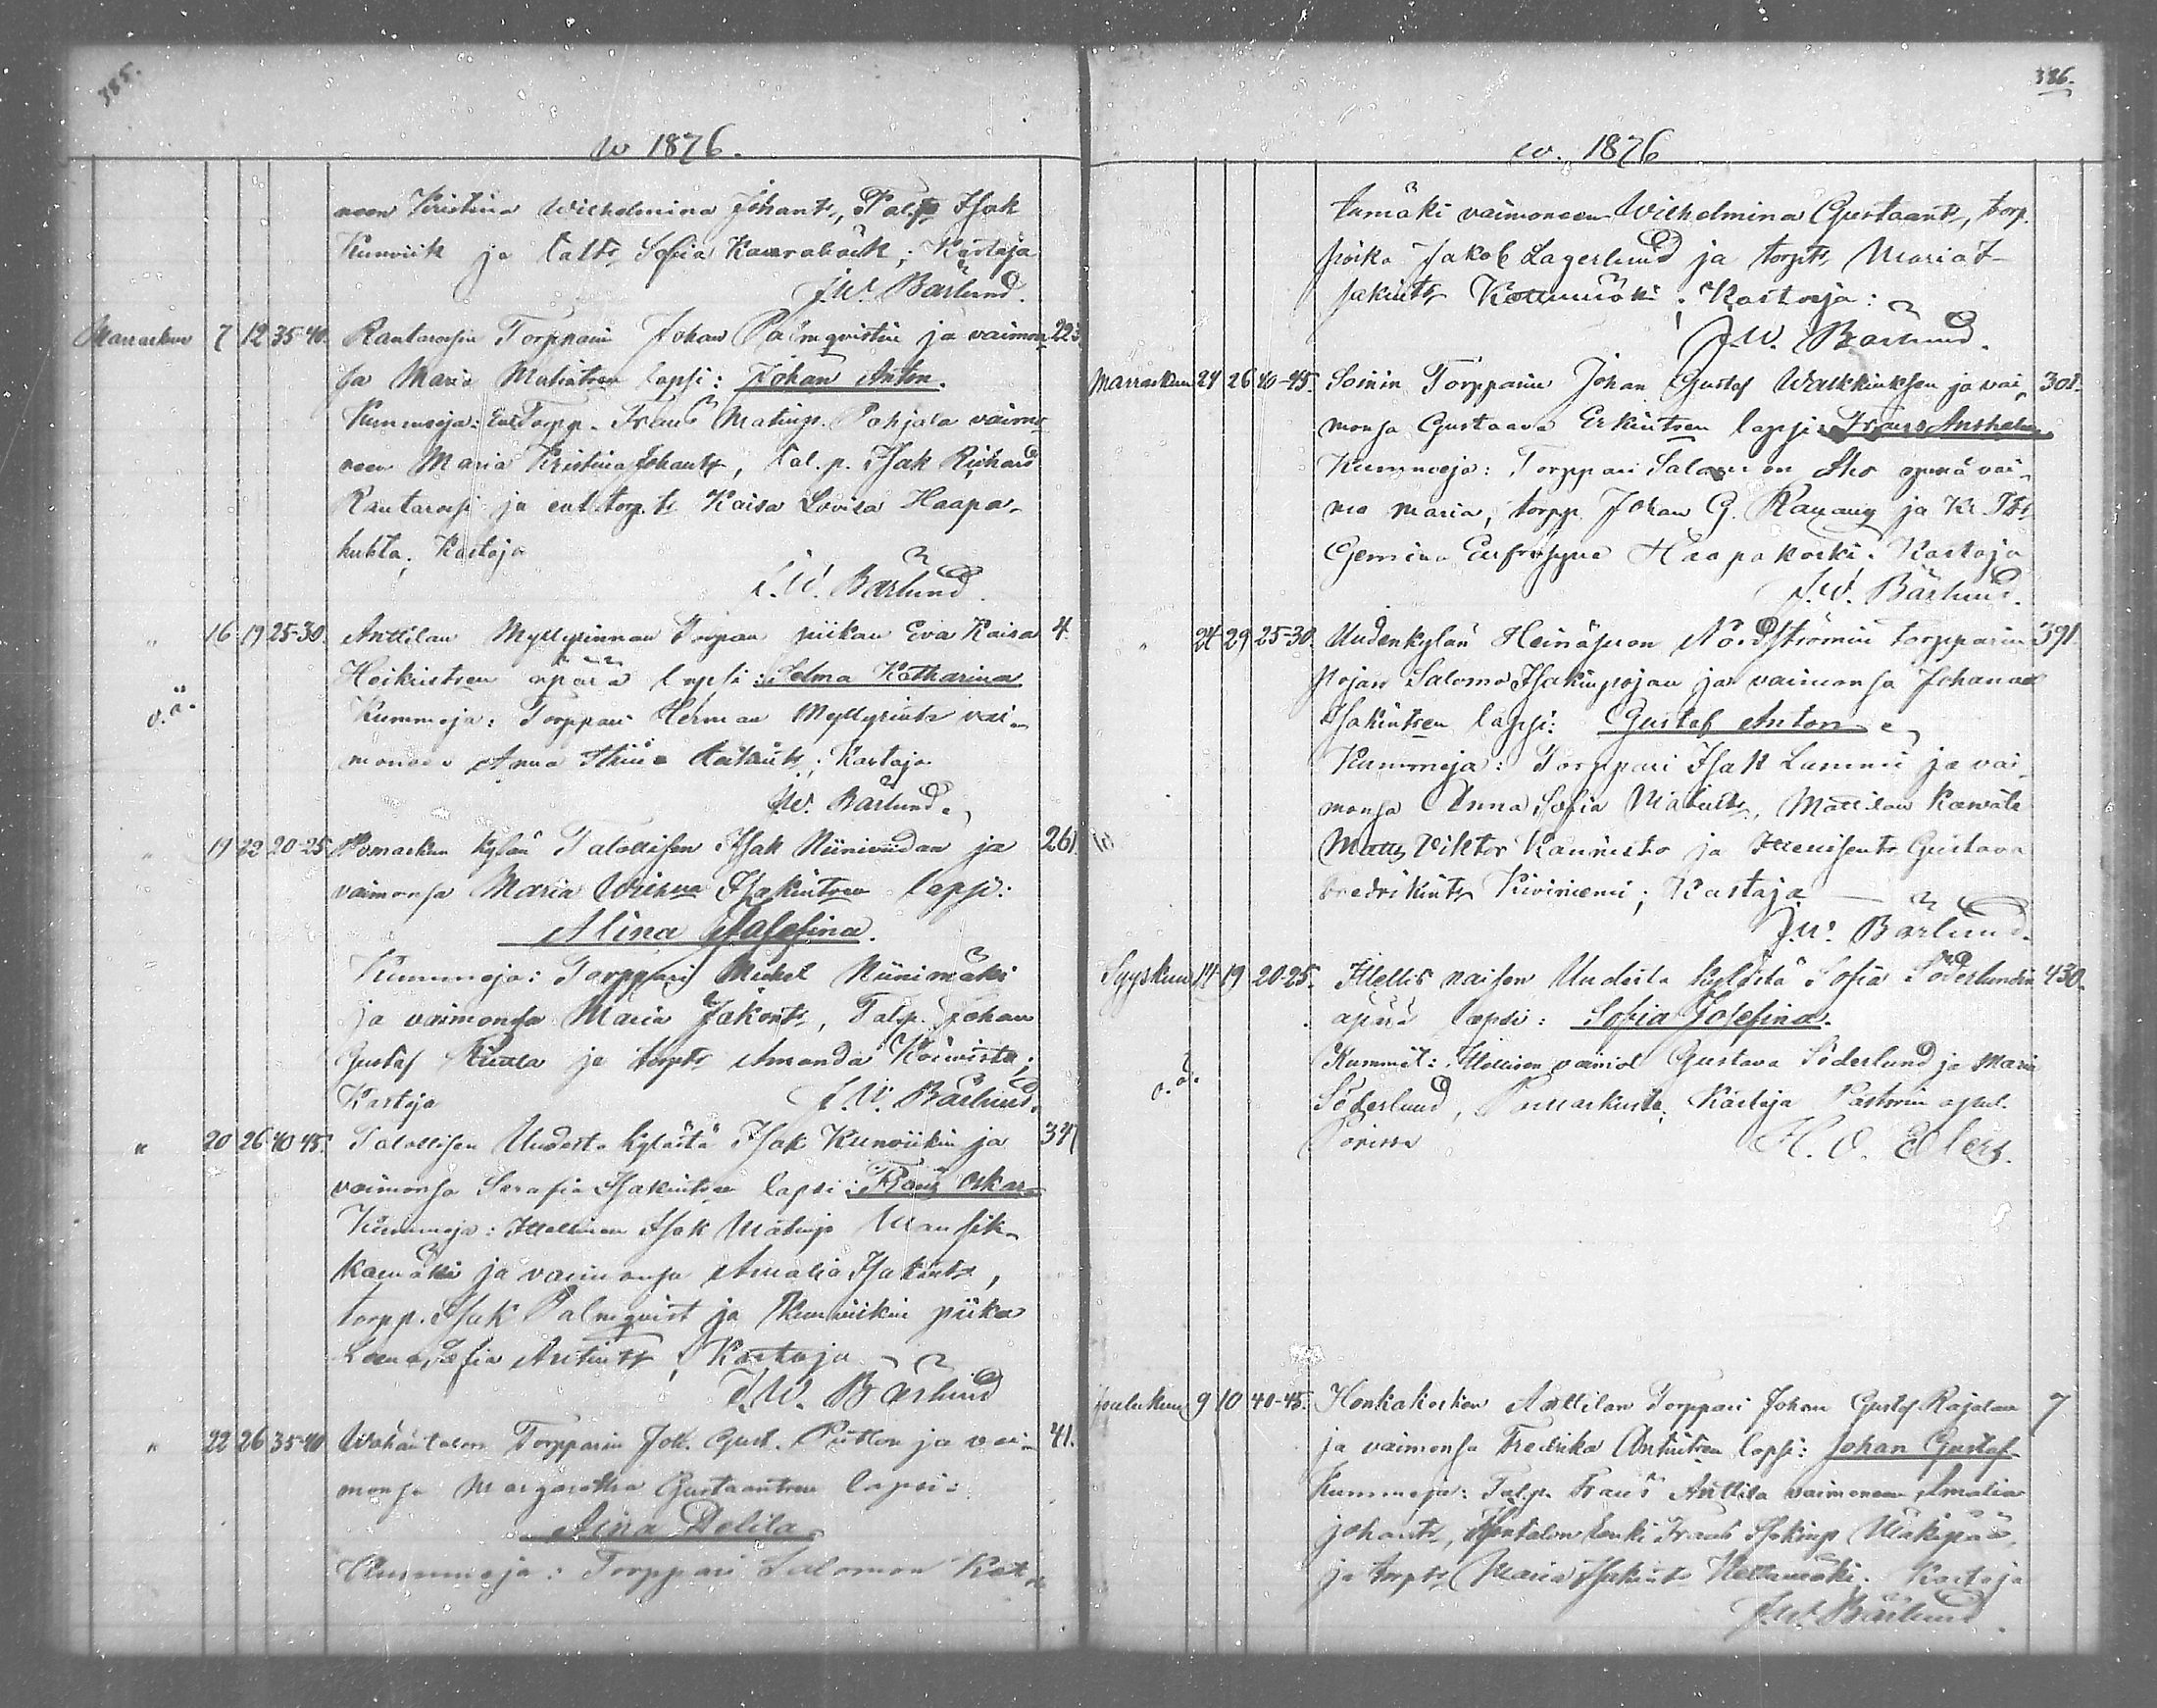 385.
w 1876.
neen Kristina Wilhelmina Johants, Talp Isak
Kunviik ja talts Sofia Kaurabäck; Kastaja
J.W. Bärlund.
Marraskuu 7 12 35-40. Rantarossin Torpparin Johan Palmqvistin ja vaimon 223
sa Maria Matintren lapsi: Johan Anton.
Kummeja: Ent Torpp. Frans Matinp. Pohjala vaimo
neen Maria Kristina Johants, tal.p. Isak Richard
Rantarossi ja ent torp.ts Kaisa Lovisa Haapa-
huhta; Kastaja
J.W. Bärlund.
" 16 19 25-30. Anttilan Myllyrinnan Torpan piikan Eva Kaisa 4.
Heikintren äpärä lapsi: Selma Katharina
v.ä. Kummeja: Torppari Herman Myllyrinta vai-
moneen Anna Stiina; Kastaja
J.W. Bärlund.
" 19 22 20-25 Pomarkun kylän Talollisen Isak Niiniviidan ja 261
vaimonsa Maria Wilhna Isakintren lapsi:
Alina Josefina.
Kummeja: Torppari Mickel Niinimäki
ja vaimonsa Maria Jakonts, Talp. Johan
Gustaf ja torpts Amanda Koivisto;
Kastaja J.W. Bärlund.
" 20 26 40-45. Talollisen Uudesta kylästä Isak Kunviikin ja 397
vaimonsa Serafia Isakintren lapsi: Frans Oskar
Kummeja: Itsellinen Isak Matinp Mansik-
kamäki ja vaimonsa Amalia Isakints,
torpp. Isak Palmqvist ja Kunviikin piika
Leena Sofia Antints; Kastaja
J.W. Bärlund
" 22 26 35-40 Wähäntalon Torpparin Joh. Gust. ja vai- 41.
monsa Margaretha Gustaantren lapsi:
Aina Delila
Kummeja: Torppari Salomon Kat-
386.
w. 1876
tumäki vaimoneen Wilhelmina Gustaants, torp.
poika Jakob Lagerlund ja torpts Maria I-
sakints Kattumäki; Kastaja:
J.W. Bärlund.
Marraskuu 24 26 40-45. Soinin Torpparin Johan Gustaf Warkkinksen ja vai- 301.
monsa Gustaava Erkintren lapsi: Frans Anshelm
Kummeja: Torppari Salomon Aho ynnä vai-
mo Maria, torpp Johan G. ja
Gemina Eufrosyne Haapakoski. Kastaja
J.W. Bärlund.
" 24 29 25-30. Uudenkylän Heinäsuon Nordströmin torpparin 391.
pojan Salomo Isakinpojan ja vaimonsa Johanna
Isakintren lapsi: Gustaf Anton
Kummeja: Torppari Isak Lammi ja vai-
monsa Anna Sofia Matints, Mattilan
Matts Viktor Kaunisto ja Itsellisents Gustava
Fredrikints Kiviniemi; Kastaja
J.W. Bärlund.
Syyskuu 14 19 20-25. Itsellis naisen Uudesta kylästä Sofia Söderlundin 430.
äpärä lapsi: Sofia Josefina.
v.ä. Kummit: Itsellisen vaimot Gustava Söderlund ja Maria
Söderlund, Pomarkusta; Kastaja Pastorin apul.
Porissa H. O. Ehlers.
Joulukuu 9 10 40-45. Honkakosken Anttilan Torppari Johan Gustaf Rajalan 7
ja vaimonsa Fredrika Antintren lapsi: Johan Gustaf
Kummeja: Talp. Frans Anttila vaimoneen Amalia
Johants, renki Frans Isakinp Mäkipää,
ja torpts Maria Isakints Kattumäki. Kastaja
J.W. Bärlund.